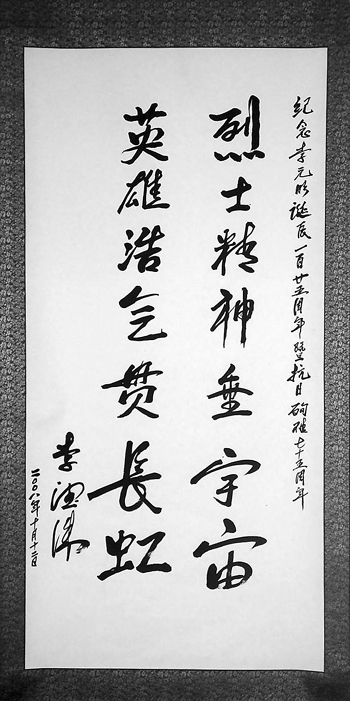 纪念李元诞辰一百廿五周年暨抗日殉七十五周年
烈士精神垂宇宙
英雄浩气贯長虹
李
二〇〇八年十月十二日